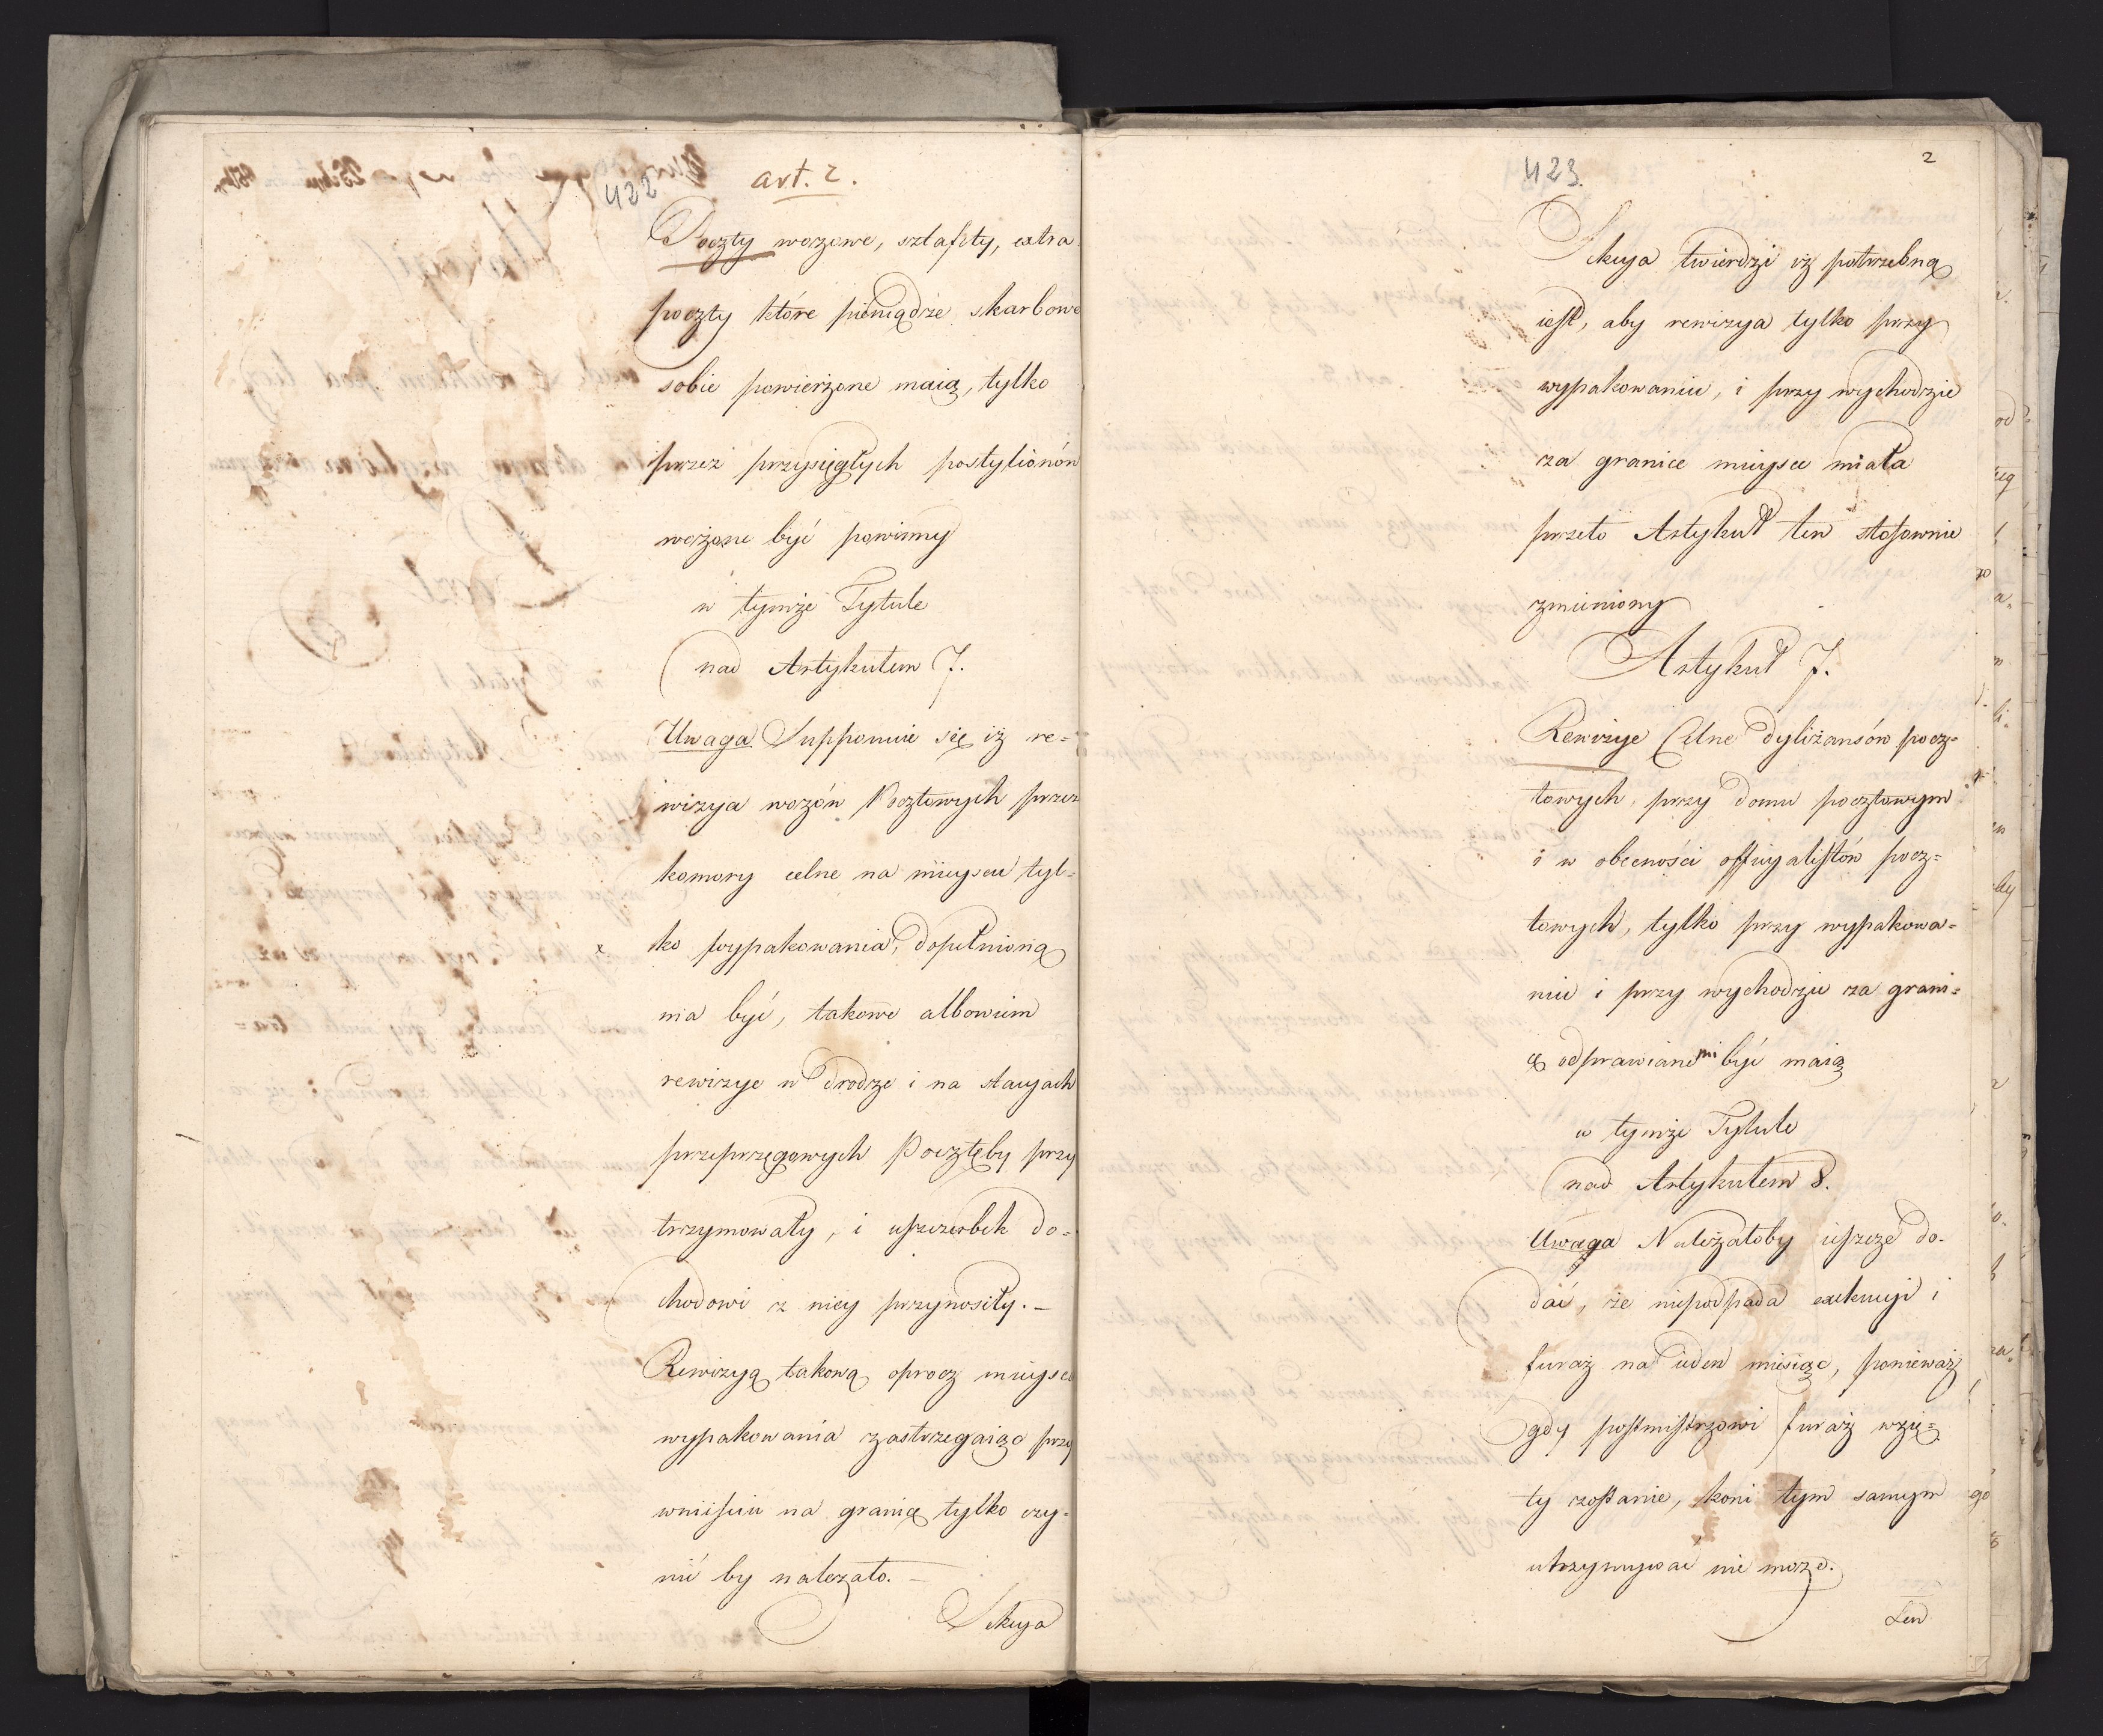 422
art. 2.
Poczty wozowe, sztafety, extra
poczty które pieniądze skarbowe
sobie powierzone maią, tylko
przez przysięgłych postylionów
wożone być powinny
w tymże Tytule
nad Artykułem 7.
Uwaga. Supponuie się iż re=
wizya wozów Pocztowych przez
komory celne na mieyscu tyl=
ko wypakowania, dopełnioną
ma być, takowe albowiem
rewizye w drodze i na stacyach
przeprzęgowych Pocztęby przy
trzymowały, i uszczerbek do=
chodowi z niey przynosiły. –
Rewizyą takową oprocz mieysca
wypakowania zastrzegaiąc przy
wniiściu na granicę tylko czy=
nić by należało. –
Sekcya
423.
2
Sekcya twierdzi iż potrzebną
iest, aby rewizya tylko przy
wypakowaniu, i przy wychodzie
za granice mieysce miała
przeto Artykuł ten stosownie
zmieniony
Artykuł 7.
Rewizye Celne dyliżansów pocz=
towych, przy domu pocztowym
i w obecności officyalistów pocz=
towych, tylko przy wypakowa=
niu i przy wychodzie za grani=
cę odprawianemi być maią
w tymże Tytule
nad Artykułem 8.
Uwaga Należałoby ieszcze do-
dać, że niepodpada exekucyi i
furaż na ieden miesiąc, ponieważ
gdy postmistrzowi furaż wzię=
ty zostanie, koni tym samym
utrzymywać nie może.
Len